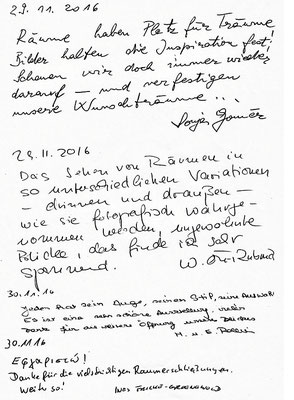 29. 11. 2016
Räume haben Platz für Träume
Bilder halten die Inspiration fest!
Schauen wir doch immer wieder
darauf – und verfestigen
unsere Wunschträume ...
29.11.2016
Das Sehen von Räumen in
so unterschiedlichen Variationen
– drinnen und draußen –
wie sie fotografisch wahrge-
nommen werden, ungewohnte
Blicke, das finde ich sehr
spannend. W.
30.11.16
Jeder hat sein Auge, seinen Stil, seine Auswahl
Es ist eine sehr schöne Ausstellung, vielen
Dank für die weitere Öffnung unseres Denkens
H. u. G.
30.11.16
Εὐχαριστώ!
Danke für die vielschichtigen Raumerschließungen.
Weiter so!